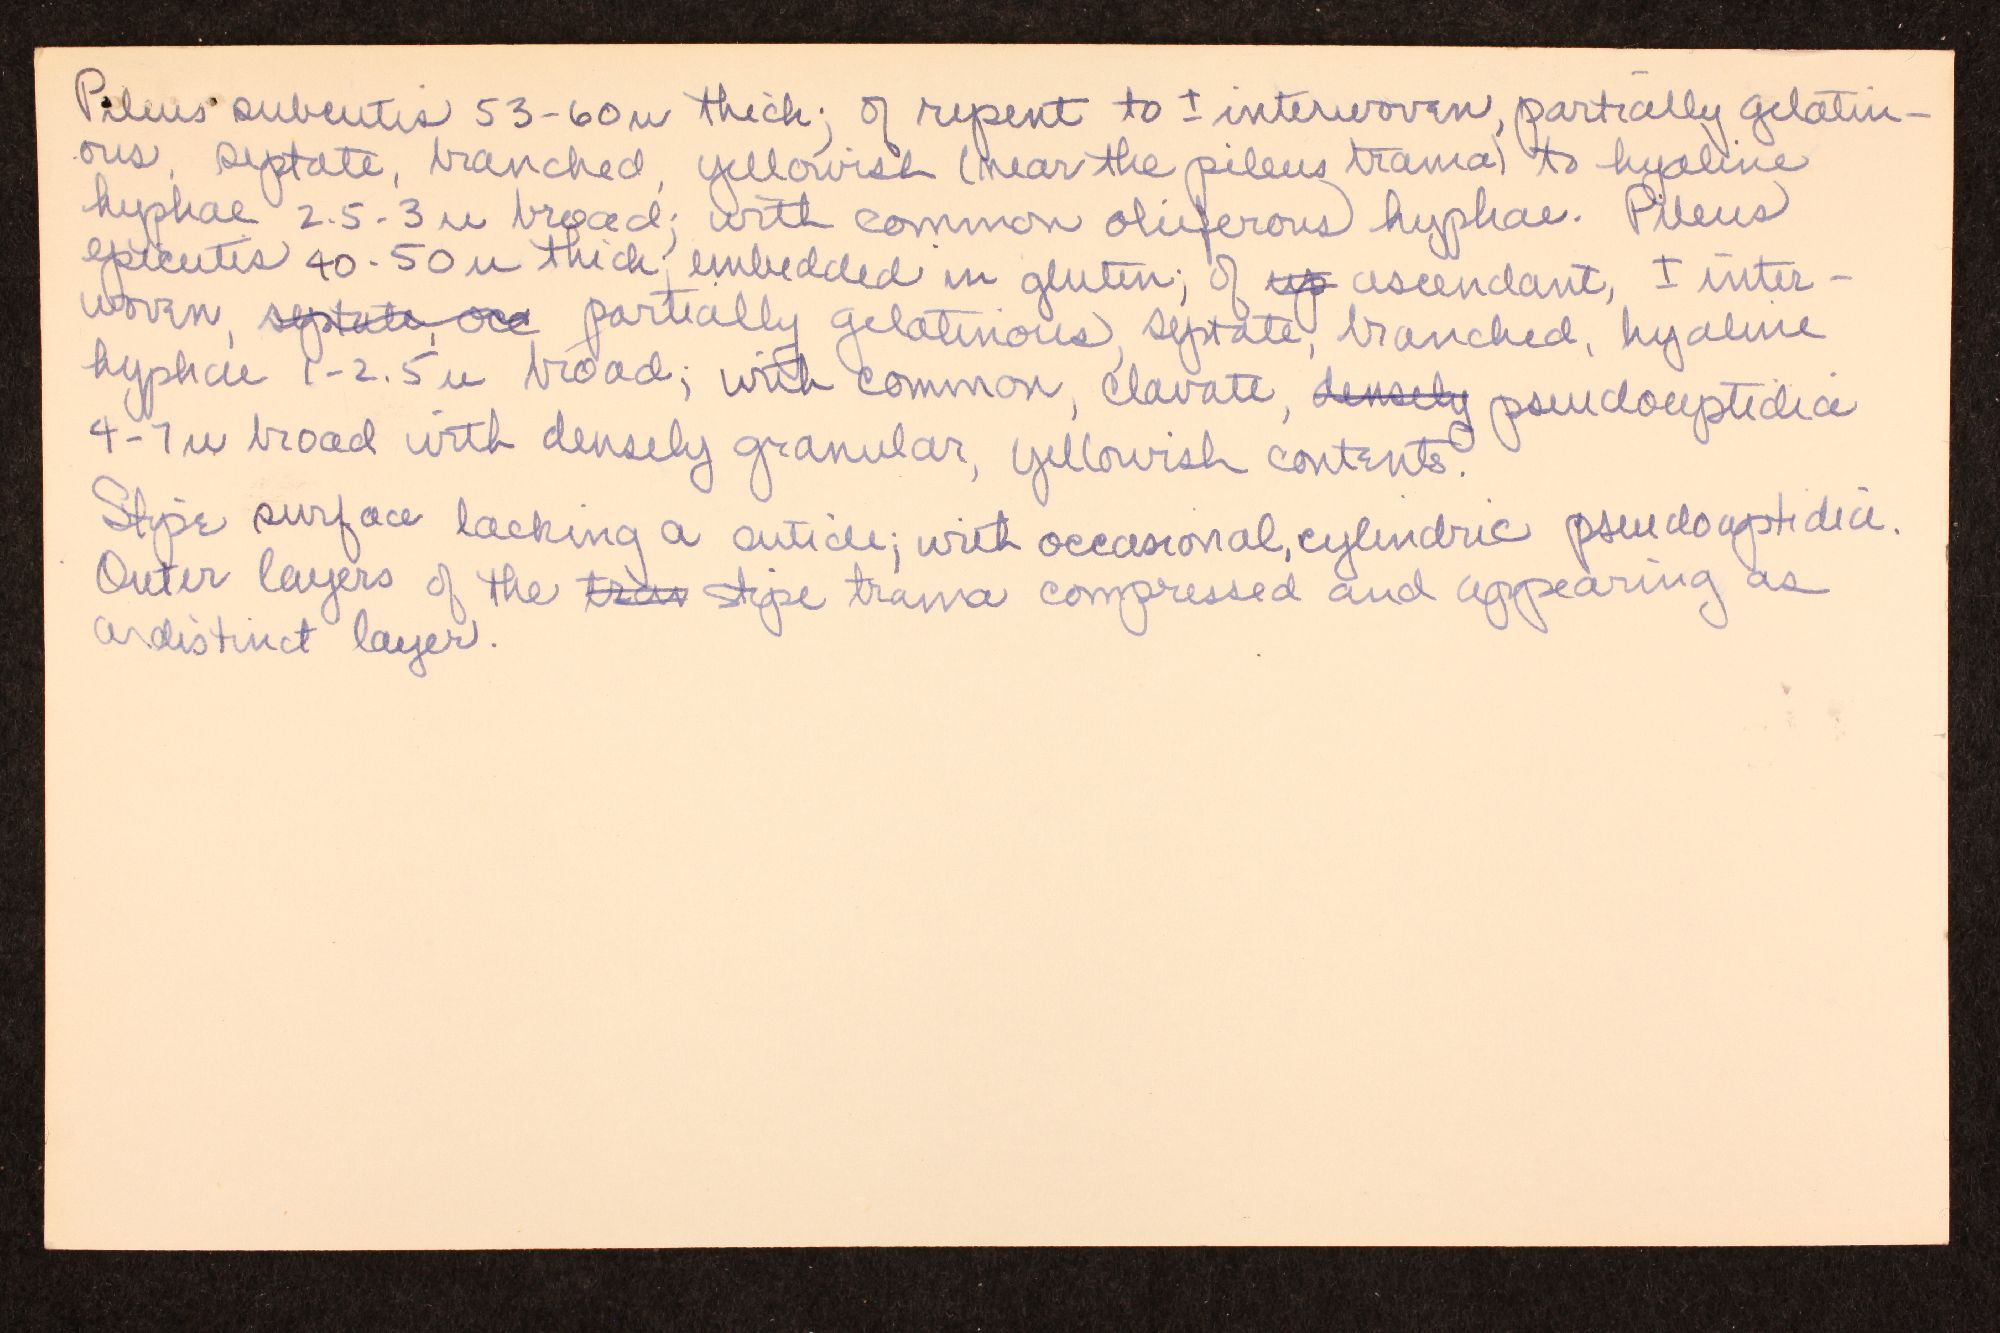 Pileus subcutis 53-60u thick; of repent to ± interwoven, partially gelatin-
ous, septate, branched, yellowish (near the pileus trama) to hyaline
hyphae 2.5-3u broad; with common oliferous hyphae. Pileus
epicutis 40-50u thick; embedded in gluten; of up ascendant, ± inter-
woven, septate, occ partially gelatinous, septate, branched, hyaline
hyphae 1-2.5u broad; with common, clavate, densely pseudocystidia
4-7u broad with densely granular, yellowish contents.
Stipe surface lacking a cuticle; with occasional, cylindric pseudocystidia.
Outer layers of the tram stipe trama compressed and appearing as
a distinct layer.